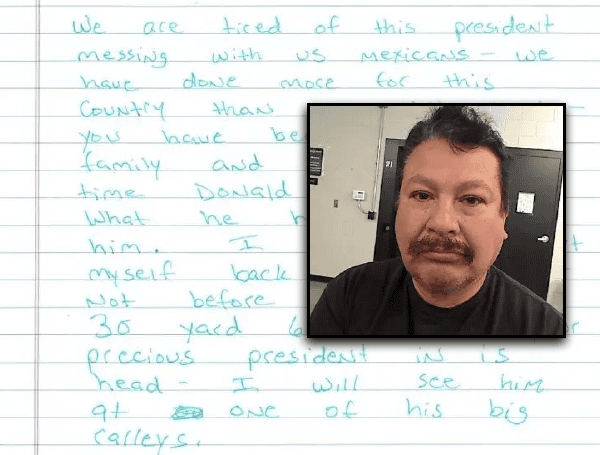 We are tired of this president
messing with us mexicans - we
have done more for this
Country than
you have be
family and
time DONALD
What he h
him. I
myself back
Not before
30 yard 6
precious president in is
head - I will see him
at one of his big
ralleys.